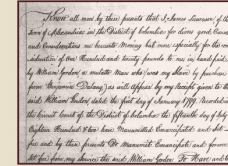 Know all men by these presents that I, James Lawrason of the
Town of Alexandria in the District of Columbia for divers good Causes
and Considerations me hereunto Moving but more especially for the con-
sideration of one Hundred and twenty pounds to me in hand paid
by William Gordon a mulatto Man who was my slave by purchase
from Benjamin Dulany as will appear by his receipt given to the
said William Gordon dated the first day of January 1799. Recorded in
the Circuit Court of the District of Columbia the fifteenth day of July
Eighteen Hundred & two have Manumitted Emancipated and set
free and by these presents Do Manumit Emancipate and
set free from my service the said William Gordon. To Have and